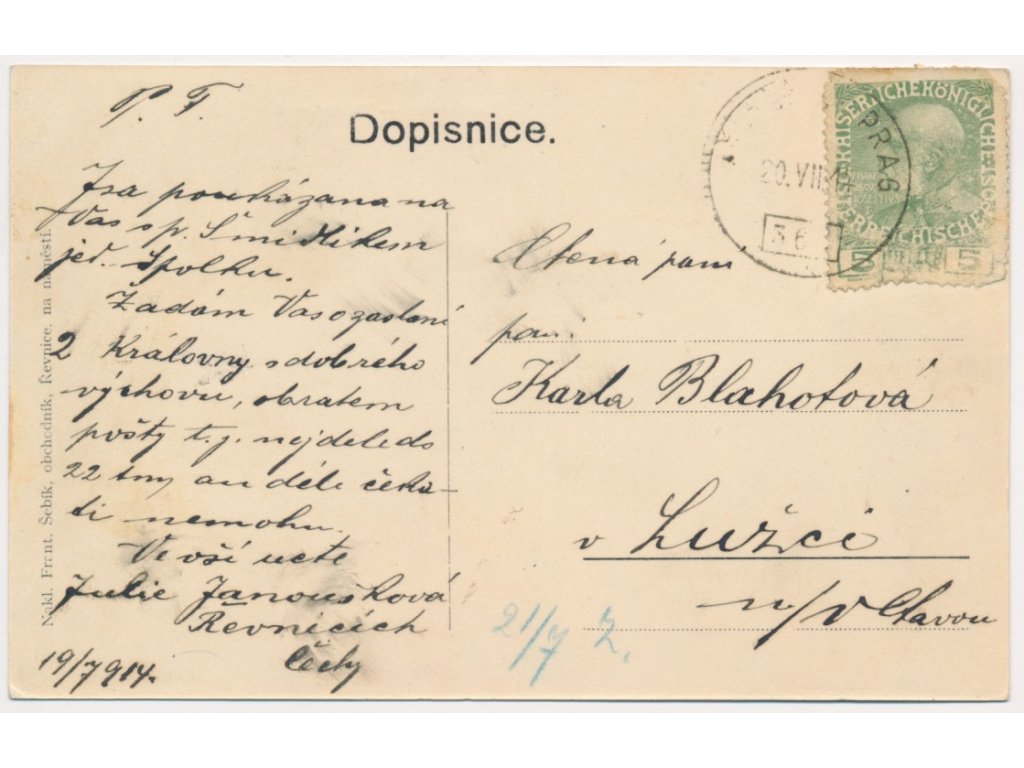 P. F.
Dopisnice.
Jsa poukázana na
Vas sp.
jed. Spolku.
Žadám Vas o zaslaní
2 Královny s dobrého
výchovu, obratem
pošty t. j. nejdele do
22 an déle čeka-
ti nemohu.
Ve vší uctě
Julie Janoušková
Řevnicích
Čechy
19/7 914.
Nakl. Frant. Šebík, obchodník, Řevnice, na náměstí.
PRAG
20. VII 14
36
KAISERLICHEKÖNIGLICHE
ÖSTERREICHISCHE POST
FRANC
IOSEFIVS
5 HELLER 5
Ctená pani
paní
Karla Blahotová
v Lužci
n/Vltavou
21/7 Z.